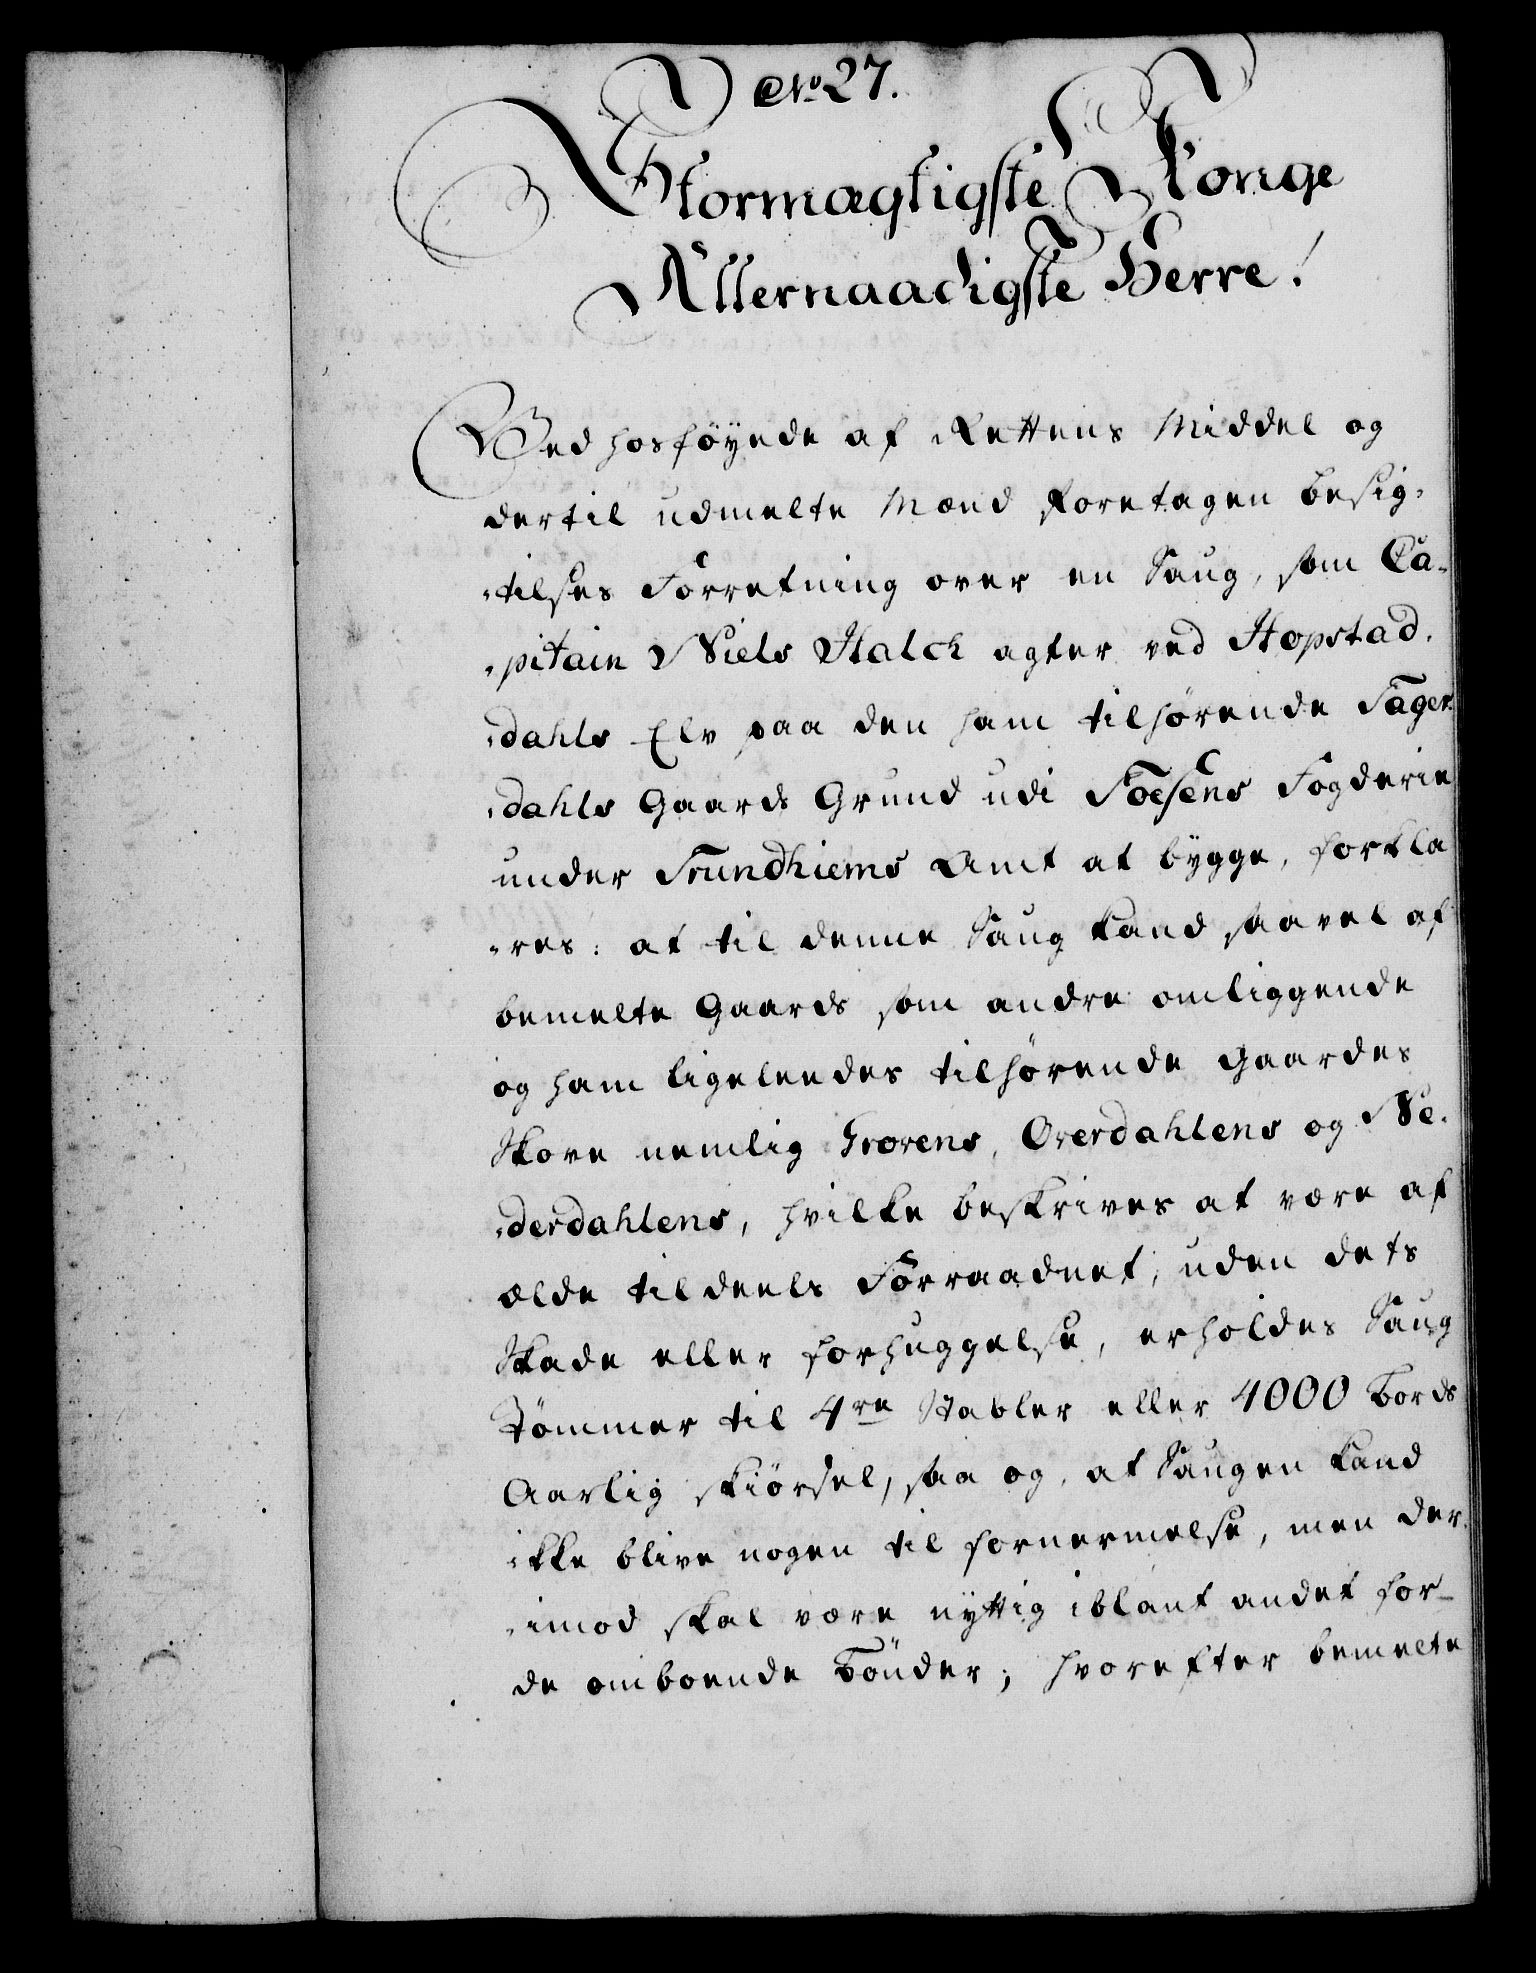 No. 27.
Stormægtigste Konge
Allernaadigste Herre!
Ved hosföyede af Rettens Middel og
dertil udmelte Mænd foretagen besig-
-tilses Forretning over en Saug, som Ca-
-pitain Niels Halck agter ved Hopstad-
-dahls Elv paa den ham tilhørende Fager-
-dahls Gaards Grund udi Foesens Fogderie
under Trundhiems Amt at bygge, forkla-
-res: at til denne Saug kand saavel af
bemelte Gaards som andre omliggende
og ham ligeleedes tilhørende Gaardes
Skove nemlig Grovens, Overdahlens og Ne-
-derdahlens, hvilke beskrives at være af
ælde til deels Forraadnet, uden dets
Skade eller forhuggelse, erholdes Saug
Tömmer til 4re Stabler eller 4000 Bords
Aarlig skiørsel, saa og, at Saugen kand
ikke blive nogen til fornermelse, men der-
-imod skal være nyttig iblant andet for
de omboende Bönder; hvorefter bemelte